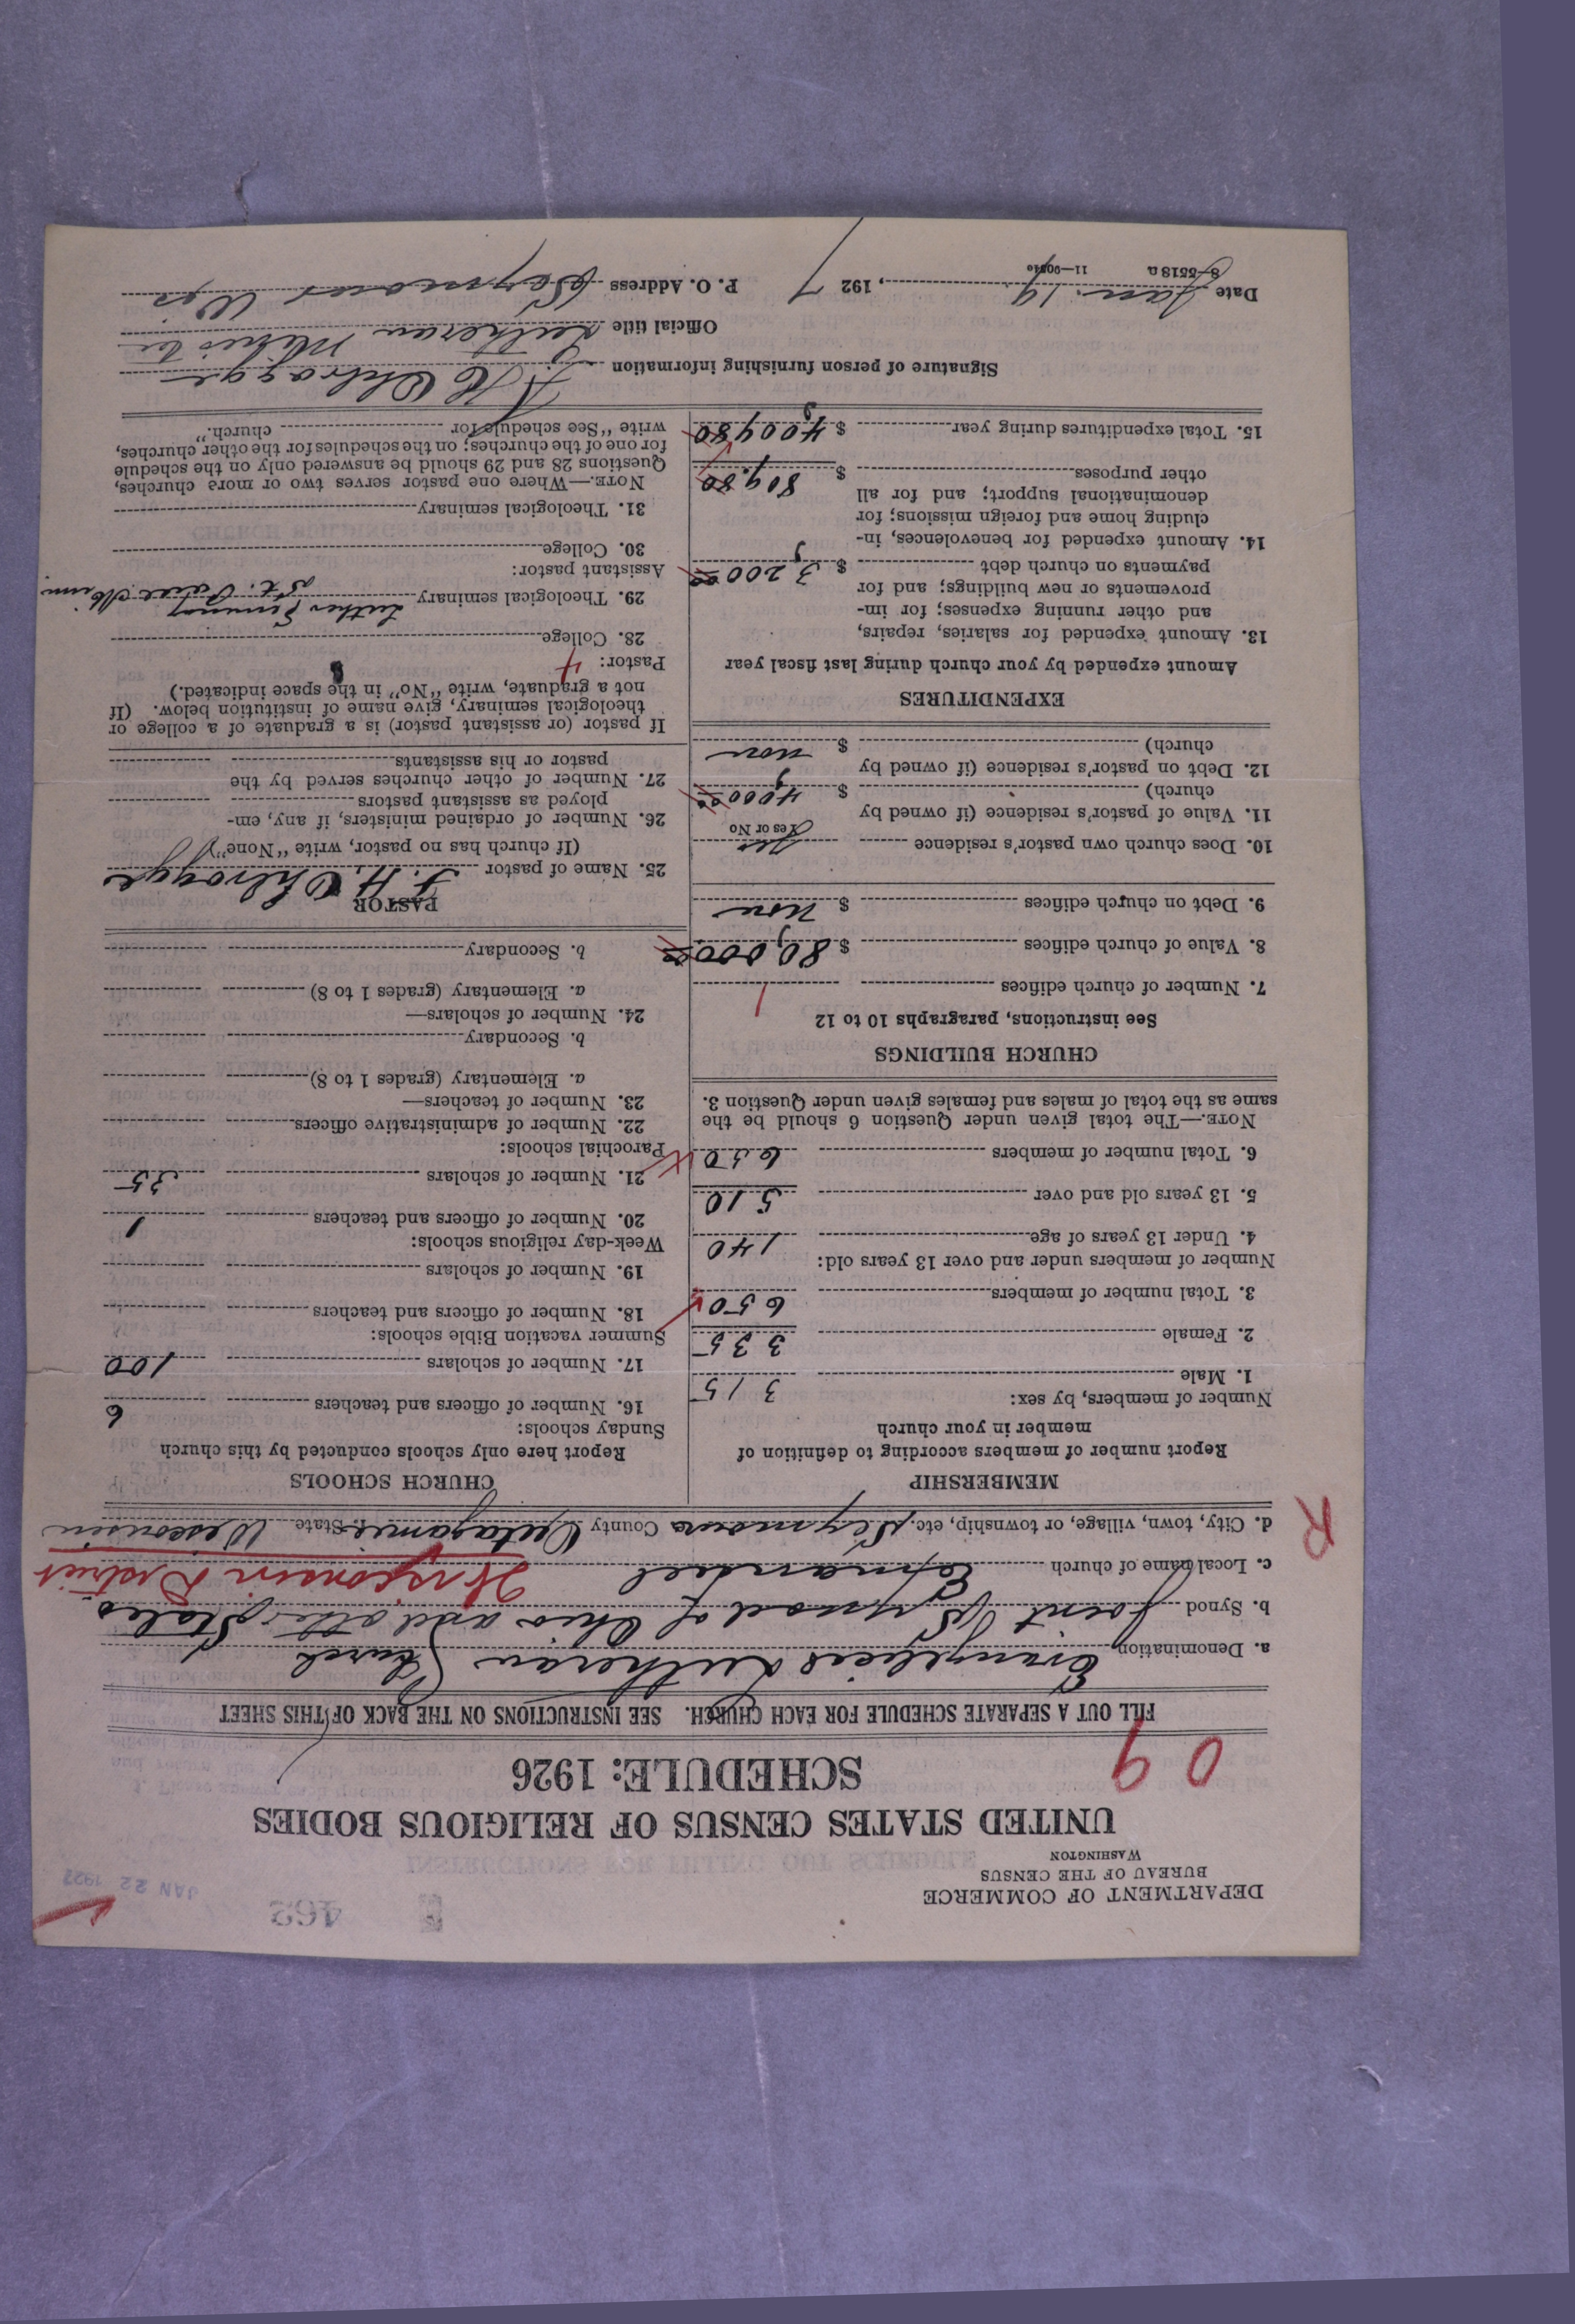 DEPARTMENT OF COMMERCE
BUREAU OF THE CENSUS
WASHINGTON
462
JAN 22 1927
UNITED STATES CENSUS OF RELIGIOUS BODIES
SCHEDULE: 1926
09
FILL OUT A SEPARATE SCHEDULE FOR EACH CHURCH. SEE INSTRUCTIONS ON THE BACK OF THIS SHEET
a. Denomination Evangelical Lutheran Church
b. Synod Joint Synod of Ohio and other States
c. Local name of church Emanuel Wisconsin District
d. City, town, village, or township, etc. Seymour County Outagamie State Wisconsin
R
MEMBERSHIP
Report number of members according to definition of
member in your church
Number of members, by sex:
1. Male 315
2. Female 335
3. Total number of members 650
Number of members under and over 13 years old:
4. Under 13 years of age 140
5. 13 years old and over 510
6. Total number of members 650
NOTE.—The total given under Question 6 should be the
same as the total of males and females given under Question 3.
CHURCH BUILDINGS
See instructions, paragraphs 10 to 12
7. Number of church edifices 1
8. Value of church edifices $ 80,000 00
9. Debt on church edifices $ None
10. Does church own pastor's residence Yes
Yes or No
11. Value of pastor's residence (if owned by
church) $ 4,000 00
12. Debt on pastor's residence (if owned by
church) $ none
EXPENDITURES
Amount expended by your church during last fiscal year
13. Amount expended for salaries, repairs,
and other running expenses; for im-
provements or new buildings; and for
payments on church debt $ 3,200 00
14. Amount expended for benevolences, in-
cluding home and foreign missions; for
denominational support; and for all
other purposes $ 809.80
15. Total expenditures during year $ 4,009 80
CHURCH SCHOOLS
Report here only schools conducted by this church
Sunday schools:
16. Number of officers and teachers 6
17. Number of scholars 100
Summer vacation Bible schools:
18. Number of officers and teachers
19. Number of scholars
Week-day religious schools:
20. Number of officers and teachers 1
21. Number of scholars 35
Parochial schools:
22. Number of administrative officers
23. Number of teachers—
a. Elementary (grades 1 to 8)
b. Secondary
24. Number of scholars—
a. Elementary (grades 1 to 8)
b. Secondary
PASTOR
25. Name of pastor F. H. Ohlrogge
(If church has no pastor, write "None")
26. Number of ordained ministers, if any, em-
ployed as assistant pastors
27. Number of other churches served by the
pastor or his assistants
If pastor (or assistant pastor) is a graduate of a college or
theological seminary, give name of institution below. (If
not a graduate, write "No" in the space indicated.)
Pastor: 4
28. College
29. Theological seminary Luther Seminary St. Paul Minn.
Assistant pastor:
30. College
31. Theological seminary
NOTE.—Where one pastor serves two or more churches,
Questions 28 and 29 should be answered only on the schedule
for one of the churches; on the schedules for the other churches,
write "See schedule for church."
Signature of person furnishing information F. H. Ohlrogge
Official title Lutheran Minister
Date Jan. 19, 1927 P. O. Address Seymour Wis
8-5518a